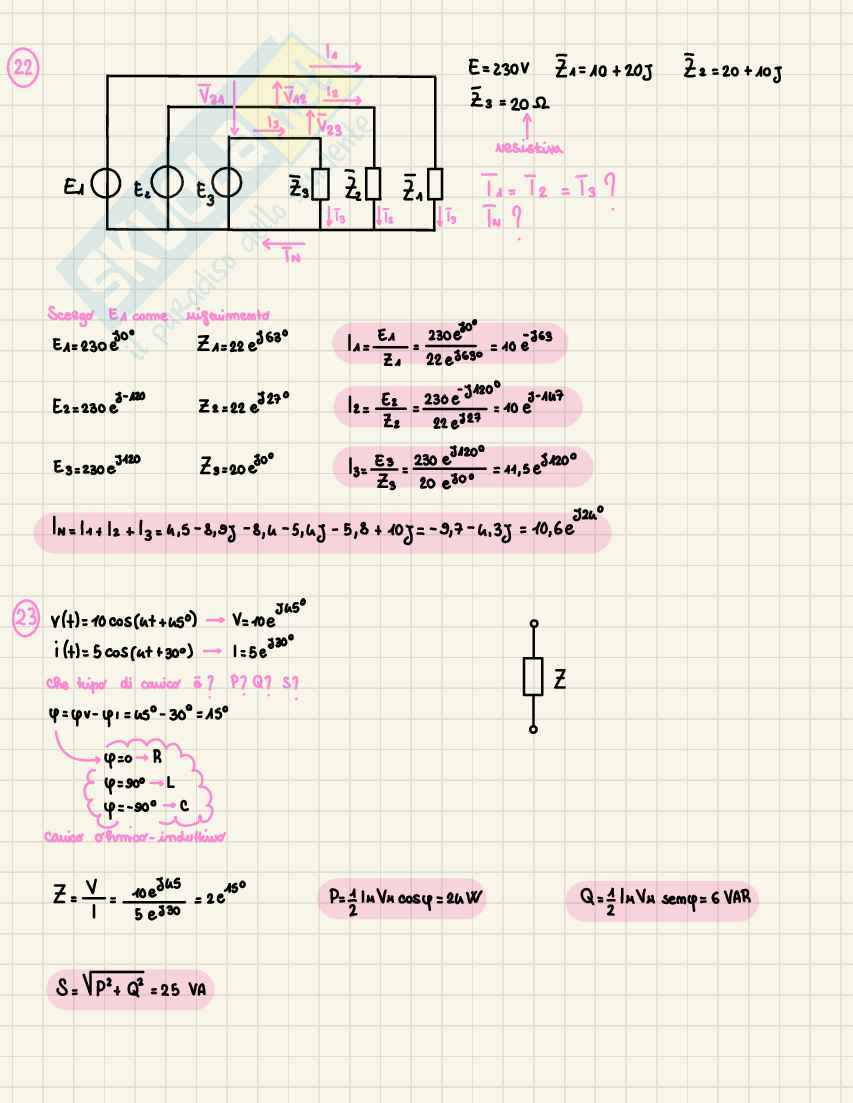 22
E = 230V Z̅1 = 10 + 20J Z̅2 = 20 + 10J
Z̅3 = 20 Ω
resistiva
I̅1 = I̅2 = I̅3 ?
I̅N ?
I1
V̅31 V̅12 I2
I3 V̅23
E1 E2 E3 Z̅3 Z̅2 Z̅1
I̅3 I̅2 I̅3
I̅N
SKUOLA
il paradiso dello
Scelgo E1 come riferimento
E1 = 230 e^J0° Z1 = 22 e^J63° I1 = E1/Z1 = 230 e^J0°/22 e^J63° = 10 e^-J63
E2 = 230 e^J-120 Z2 = 22 e^J27° I2 = E2/Z2 = 230 e^-J120°/22 e^J27 = 10 e^J-147
E3 = 230 e^J120 Z3 = 20 e^J0° I3 = E3/Z3 = 230 e^J120°/20 e^J0° = 11,5 e^J120°
IN = I1 + I2 + I3 = 4,5 - 8,9J - 8,4 - 5,4J - 5,8 + 10J = -9,7 - 4,3J = 10,6 e^J24°
23
v(t) = 10 cos(4t + 45°) → V = 10 e^J45°
i(t) = 5 cos(4t + 30°) → I = 5 e^J30°
Z
Che tipo di carico è? P? Q? S?
φ = φV - φI = 45° - 30° = 15°
φ = 0 → R
φ = 90° → L
φ = -90° → C
Carico ohmico-induttivo
Z = V/I = 10 e^J45/5 e^J30 = 2 e^15° P = 1/2 IM VM cosφ = 24 W Q = 1/2 IM VM semφ = 6 VAR
S = √(P² + Q²) = 25 VA